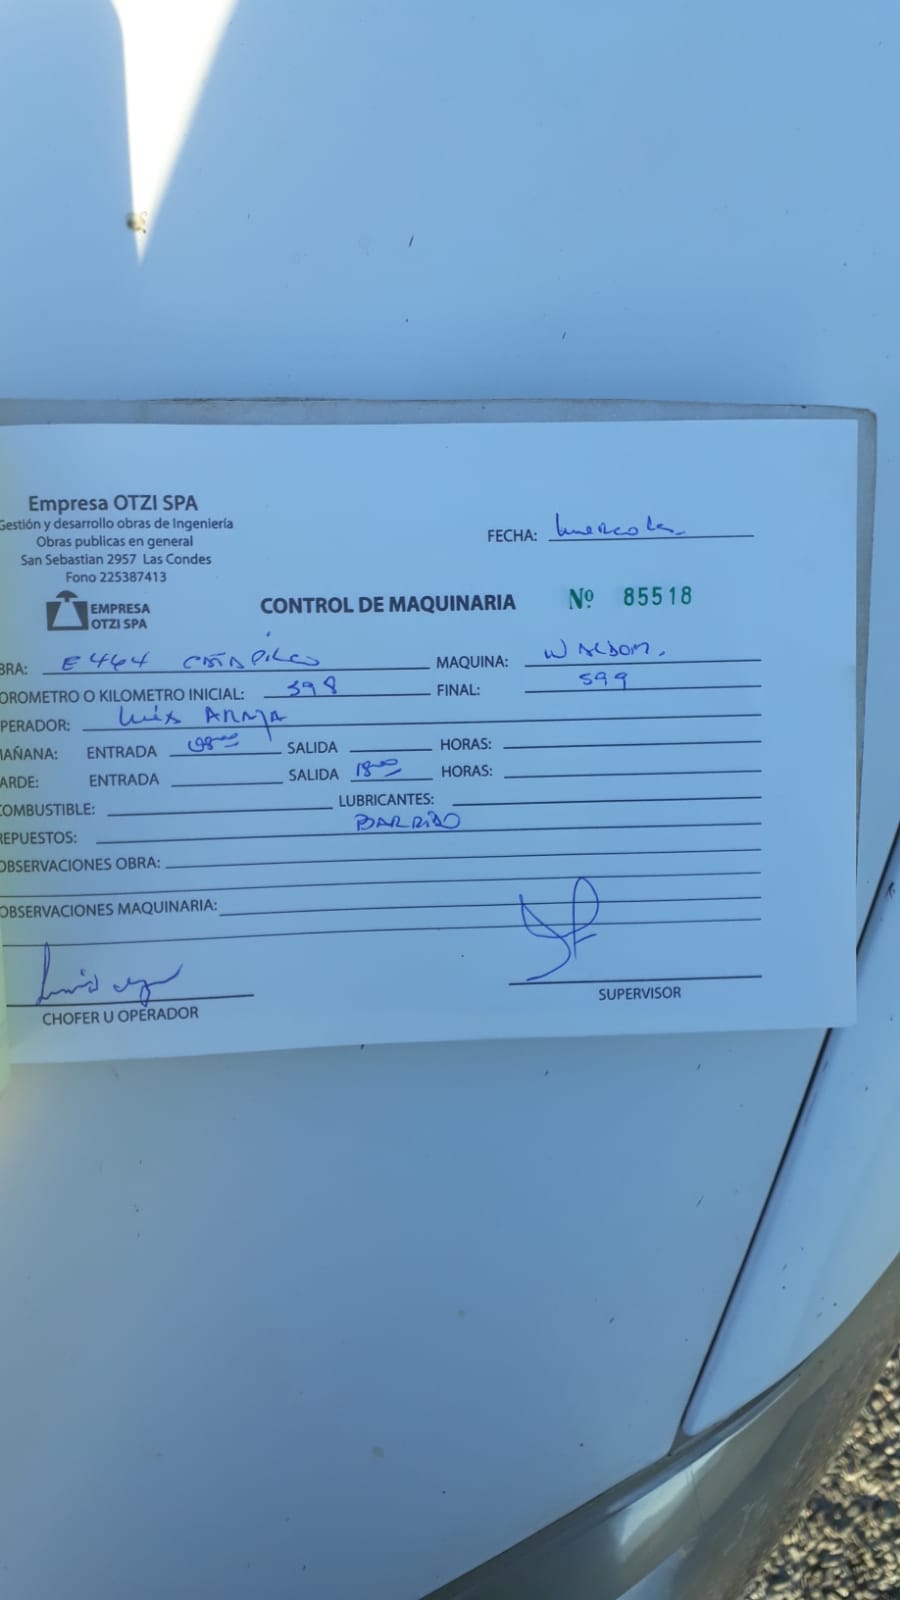 Empresa OTZI SPA
Gestión y desarrollo obras de Ingeniería
Obras publicas en general
San Sebastian 2957 Las Condes
Fono 225387413
FECHA:
EMPRESA
OTZI SPA
CONTROL DE MAQUINARIA Nº 85518
BRA: E464 CATAPILCO MAQUINA: WALDON.
OROMETRO O KILOMETRO INICIAL: 598 FINAL: 599
PERADOR: Luis ARAYA
MAÑANA: ENTRADA 08:00 SALIDA HORAS:
ARDE: ENTRADA SALIDA 18:00 HORAS:
COMBUSTIBLE: LUBRICANTES:
REPUESTOS: BARRIDO
OBSERVACIONES OBRA:
OBSERVACIONES MAQUINARIA:
CHOFER U OPERADOR
SUPERVISOR